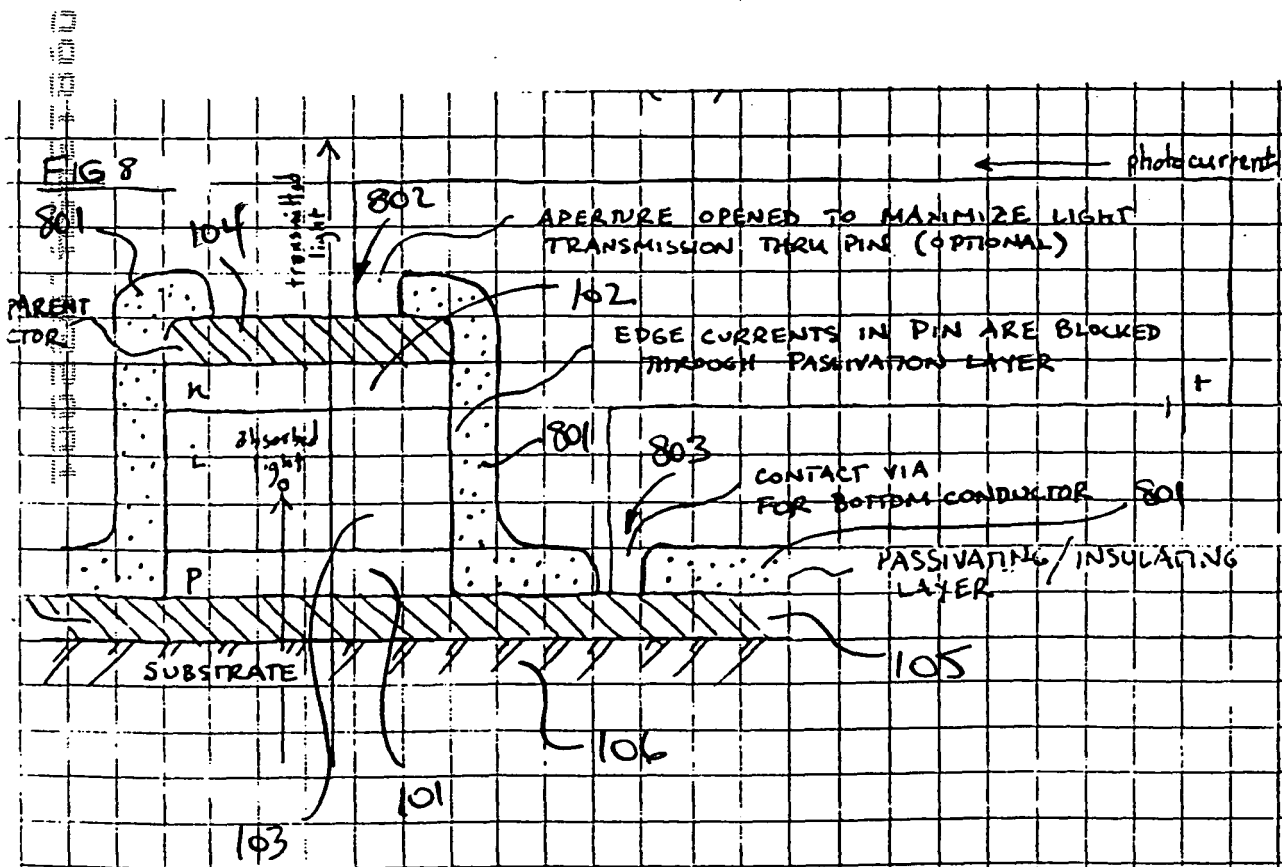 FIG 8
photocurrent
801
104
transmitted
light
802
APERTURE OPENED TO MAXIMIZE LIGHT
TRANSMISSION THRU PIN (OPTIONAL)
102
PARENT
CTOR
EDGE CURRENTS IN PIN ARE BLOCKED
THROUGH PASSIVATION LAYER
n
+
i
absorbed
light
801
803
CONTACT VIA
FOR BOTTOM CONDUCTOR 801
PASSIVATING/INSULATING
LAYER
P
SUBSTRATE
105
106
101
103